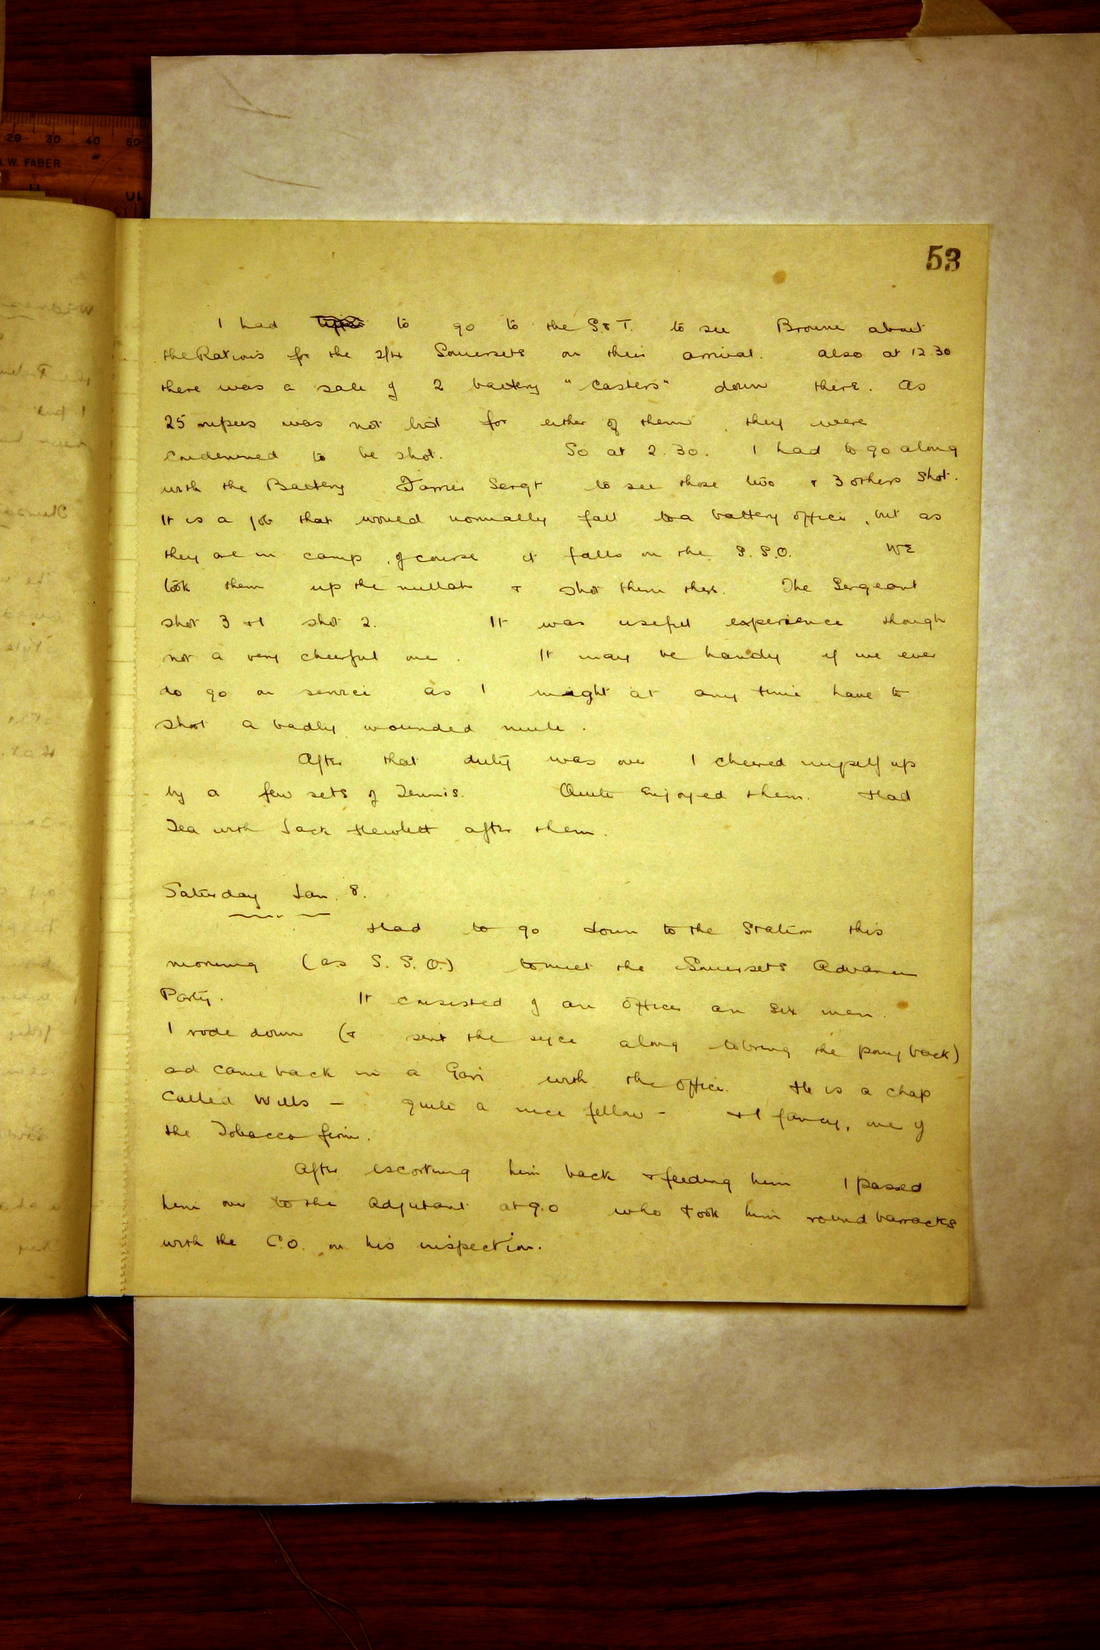 20 30 40 50
W. FABER
53
I had to go to the S & T. to see Browne about
the Rations for the 2/4 Somersets on their arrival. also at 12.30
there was a sale of 2 battery "casters" down there. As
25 rupees was not bid for either of them, they were
condemned to be shot. So at 2.30. I had to go along
with the Battery Farrier Sergt to see those two & 3 others shot.
It is a job that would normally fall to a battery officer, but as
they are in camp, of course it falls on the S.S.O. We
took them up the nullah & shot them there. The Sergeant
shot 3 & I shot 2. It was useful experience though
not a very cheerful one. It may be handy if we ever
do go on service as I might at any time have to
shoot a badly wounded mule.
After that duty was over I cheered myself up
by a few sets of Tennis. Quite enjoyed them. Had
Tea with Jack Hewlett after them.
Saturday Jan. 8.
Had to go down to the Station this
morning (as S.S.O.) to meet the Somersets Advance
Party. It consisted of an officer an six men.
I rode down (& sent the syce along to bring the pony back)
ad came back in a Gari with the officer. He is a chap
called Wills – quite a nice fellow – & I fancy, one of
the Tobacco firm.
After escorting him back & feeding him I passed
him over to the Adjutant at 9.0 who took him round barracks
with the C.O. on his inspection.